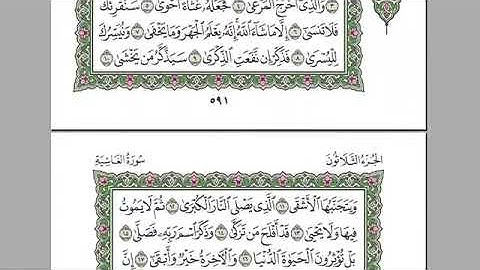 ٣ وَالَّذِي أَخْرَجَ الْمَرْعَىٰ ٤ فَجَعَلَهُ غُثَاءً أَحْوَىٰ ٥ سَنُقْرِئُكَ
فَلَا تَنسَىٰ ٦ إِلَّا مَا شَاءَ اللَّهُ إِنَّهُ يَعْلَمُ الْجَهْرَ وَمَا يَخْفَىٰ ٧ وَنُيَسِّرُكَ
لِلْيُسْرَىٰ ٨ فَذَكِّرْ إِن نَّفَعَتِ الذِّكْرَىٰ ٩ سَيَذَّكَّرُ مَن يَخْشَىٰ ١٠
٥٩١
الجُزءُ الثَّلَاثُونَ سُورَةُ الغَاشِيَةِ
وَيَتَجَنَّبُهَا الْأَشْقَى ١١ الَّذِي يَصْلَى النَّارَ الْكُبْرَىٰ ١٢ ثُمَّ لَا يَمُوتُ
فِيهَا وَلَا يَحْيَىٰ ١٣ قَدْ أَفْلَحَ مَن تَزَكَّىٰ ١٤ وَذَكَرَ اسْمَ رَبِّهِ فَصَلَّىٰ ١٥
بَلْ تُؤْثِرُونَ الْحَيَوٰةَ الدُّنْيَا ١٦ وَالْآخِرَةُ خَيْرٌ وَأَبْقَىٰ ١٧ إِنَّ